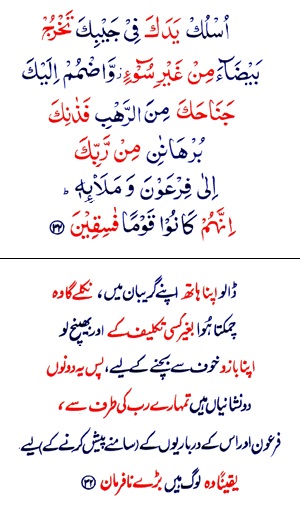 اُسْلُكْ يَدَكَ فِىْ جَيْبِكَ تَخْرُجْ
بَيْضَآءَ مِنْ غَيْرِ سُوْٓءٍ ز وَّاضْمُمْ اِلَيْكَ
جَنَاحَكَ مِنَ الرَّهْبِ فَذٰنِكَ
بُرْهَانٰنِ مِنْ رَّبِّكَ
اِلٰى فِرْعَوْنَ وَ مَلَا۟ئِهٖ ؕ
اِنَّهُمْ كَانُوْا قَوْمًا فٰسِقِيْنَ ۝۳۲
ڈالو اپنا ہاتھ اپنے گریبان میں، نکلے گا وہ
چمکتا ہُوا بغیر کسی تکلیف کے اور بھینچ لو
اپنا بازو خوف سے بچنے کے لیے، پس یہ دونوں
دو نشانیاں ہیں تمہارے رب کی طرف سے،
فرعون اور اس کے درباریوں کے (سامنے پیش کرنے کے) لیے۔
یقیناً وہ لوگ ہیں بڑے نافرمان ۝۳۲